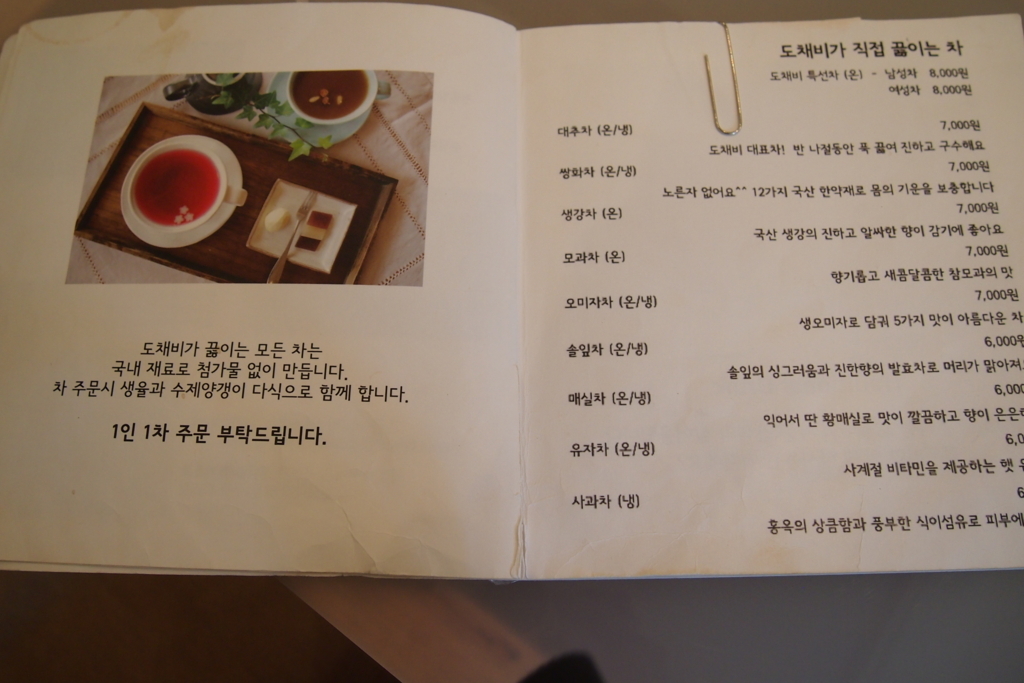 도채비가 끓이는 모든 차는
국내 재료로 첨가물 없이 만듭니다.
차 주문시 생율과 수제양갱이 다식으로 함께 합니다.
1인 1차 주문 부탁드립니다.
도채비가 직접 끓이는 차
도채비 특선차 (온) - 남성차 8,000원
여성차 8,000원
대추차 (온/냉) 7,000원
도채비 대표차! 반 나절동안 푹 끓여 진하고 구수해요
쌍화차 (온/냉) 7,000원
노른자 없어요^^ 12가지 국산 한약재로 몸의 기운을 보충합니다
생강차 (온) 7,000원
국산 생강의 진하고 알싸한 향이 감기에 좋아요
모과차 (온) 7,000원
향기롭고 새콤달콤한 참모과의 맛
오미자차 (온/냉) 7,000원
생오미자로 담궈 5가지 맛이 아름다운 차
솔잎차 (온/냉) 6,000원
솔잎의 싱그러움과 진한향의 발효차로 머리가 맑아져
매실차 (온/냉) 6,000
익어서 딴 황매실로 맛이 깔끔하고 향이 은은한
유자차 (온/냉) 6,0
사계절 비타민을 제공하는 햇
사과차 (냉) 6
홍옥의 상큼함과 풍부한 식이섬유로 피부에